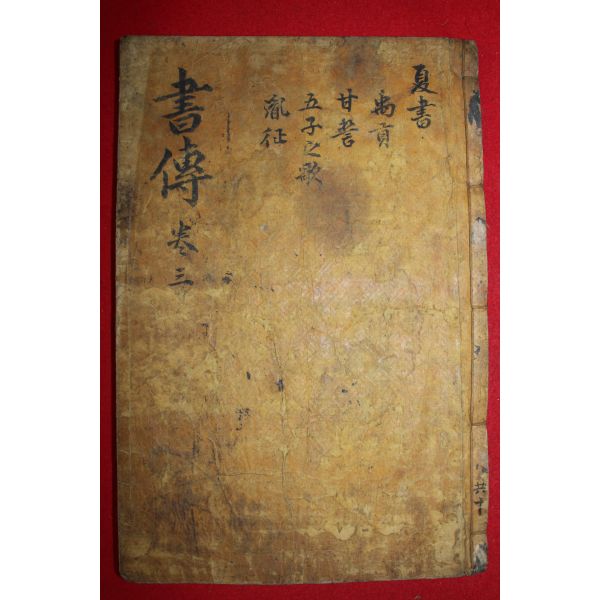 夏書
禹貢
甘誓
五子之歌
胤征
書傳 卷三
共十